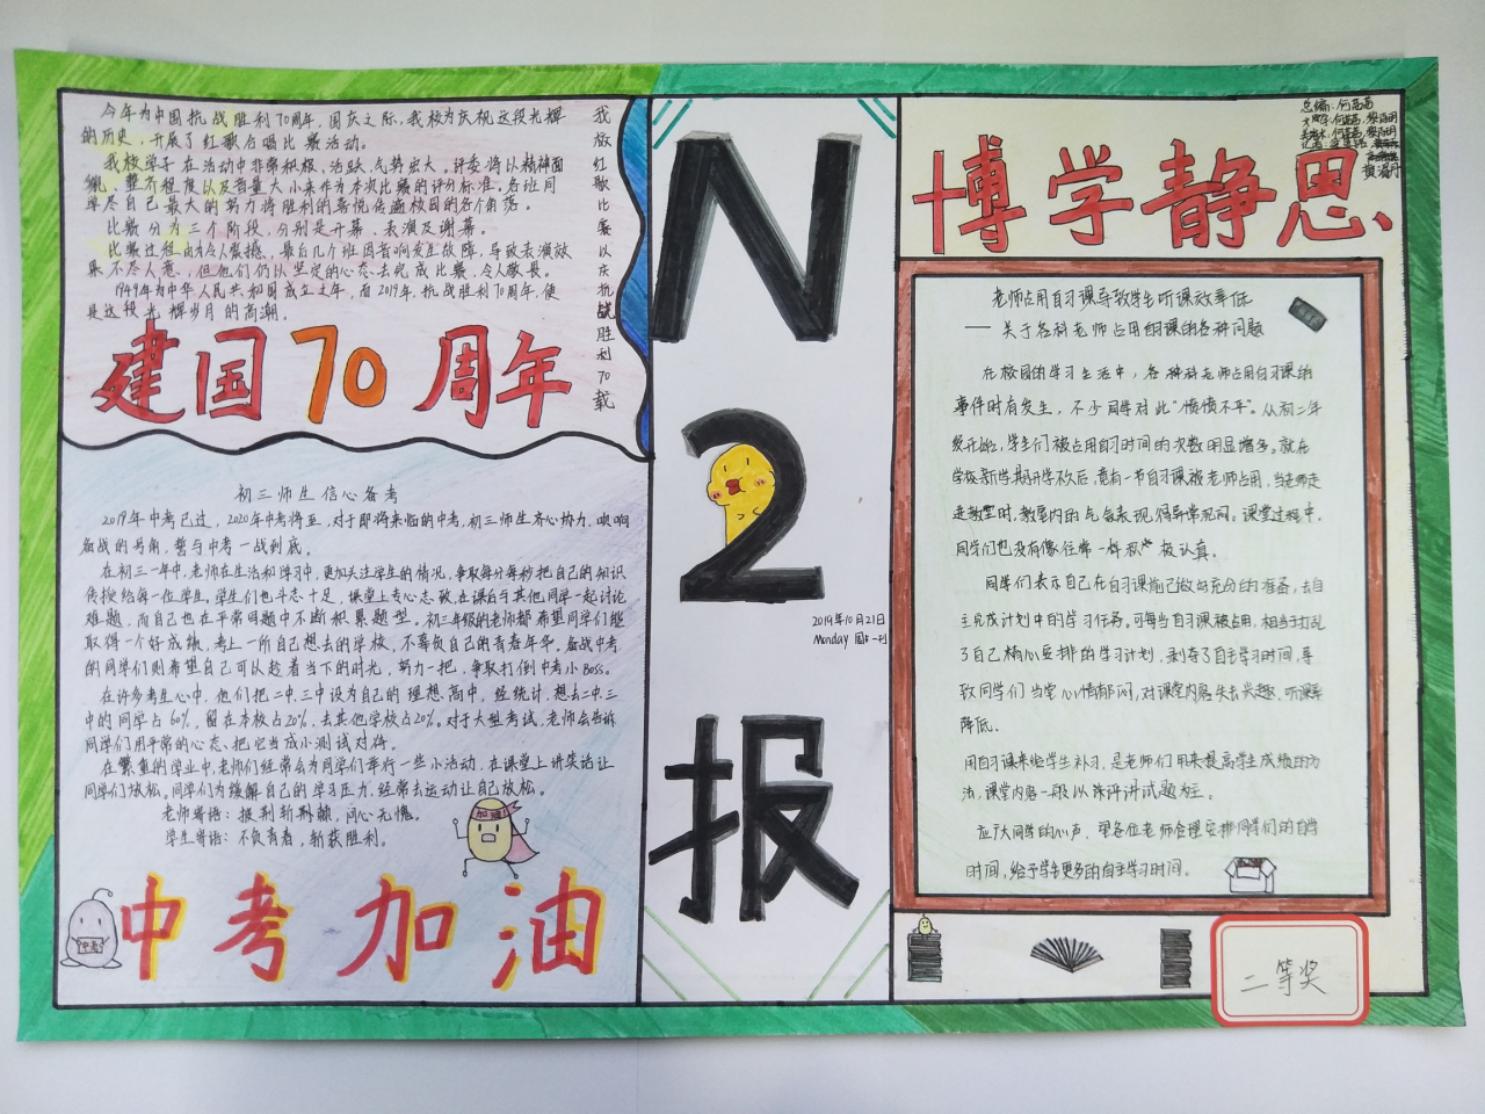 今年为中国抗战胜利70周年,国庆之际,我校为庆祝这段光辉
的历史,开展了红歌合唱比赛活动。
我校学子在活动中非常积极、活跃,气势宏大。评委将以精神面
貌、整齐程度以及音量大小来作为本次比赛的评分标准。各班同
学尽自己最大的努力将胜利的喜悦传遍校园的各个角落。
比赛分为三个阶段,分别是开幕、表演及谢幕。
比赛过程令人震撼,最后几个班因音响发生故障,导致表演效
果不尽人意,但他们仍以坚定的心态去完成比赛,令人敬畏。
1949年为中华人民共和国成立之年,而2019年,抗战胜利70周年,使
是这段光辉岁月的高潮。
我校红歌比赛以庆抗战胜利70载
建国70周年
初三师生信心备考
2019年中考已过,2020年中考将至,对于即将来临的中考,初三师生齐心协力,吹响
备战的号角,誓与中考一战到底。
在初三一年中,老师在生活和学习中,更加关注学生的情况,争取每分每秒把自己的知识
传授给每一位学生,学生们也斗志十足,课堂上专心志致,在课后与其他同学一起讨论
难题,而自己也在平常因题中不断积累题型。初三年级的老师都希望同学们能
取得一个好成绩,考上一所自己想去的学校,不辜负自己的青春年华。备战中考
的同学们则希望自己可以趁着当下的时光,努力一把,争取打倒中考小Boss。
在许多考生心中,他们把二中,三中设为自己的理想高中,经统计,想去二中,三
中的同学占60%,留在本校占20%,去其他学校占20%。对于大型考试,老师会告诉
同学们用平常的心态、把它当成小测试对待。
在繁重的学业中,老师们经常会为同学们举行一些小活动,在课堂上讲笑话让
同学们放松。同学们为缓解自己的学习压力,经常去运动让自己放松。
老师寄语:披荆斩棘,问心无愧。
学生寄语:不负青春,斩获胜利。
加油
中考
中考加油
N
2
报
2019年10月21日
Monday 周一刊
总编:何
博学静思
老师占用自习课导致学生听课效率低
——关于各科老师占用自习课的各种问题
在校园的学习生活中,各种科老师占用自习课的
事件时有发生,不少同学对此“愤愤不平”。从初二年
级开始,学生们被占用自习时间的次数明显增多。就在
学校新学期开学不久后,竟有一节自习课被老师占用,当老师走
进教室时,教室内的气氛表现得异常沉闷。课堂过程中,
同学们也没有像往常一样积极认真。
同学们表示自己在自习课前已做好充分的准备,去自
主完成计划中的学习任务。可每当自习课被占用,相当于打乱
了自己精心安排的学习计划,剥夺了自主学习时间,导
致同学们当堂心情郁闷,对课堂内容失去兴趣,听课率
降低。
用自习课来给学生补习,是老师们用来提高学生成绩的方
法,课堂内容一般以讲评试题为主。
应广大同学的心声,望各位老师合理安排同学们的自学
时间,给予学生更多的自主学习时间。
二等奖